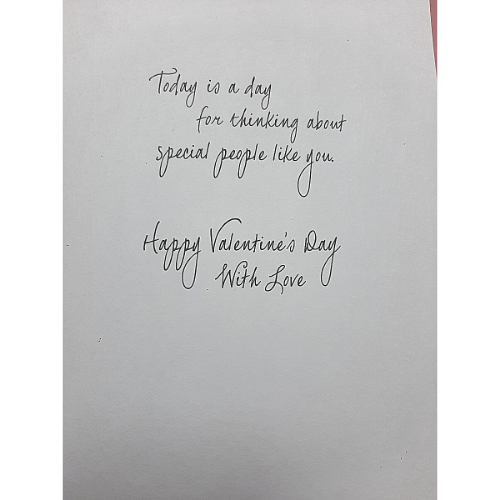 Today is a day
for thinking about
special people like you.
Happy Valentine's Day
With Love